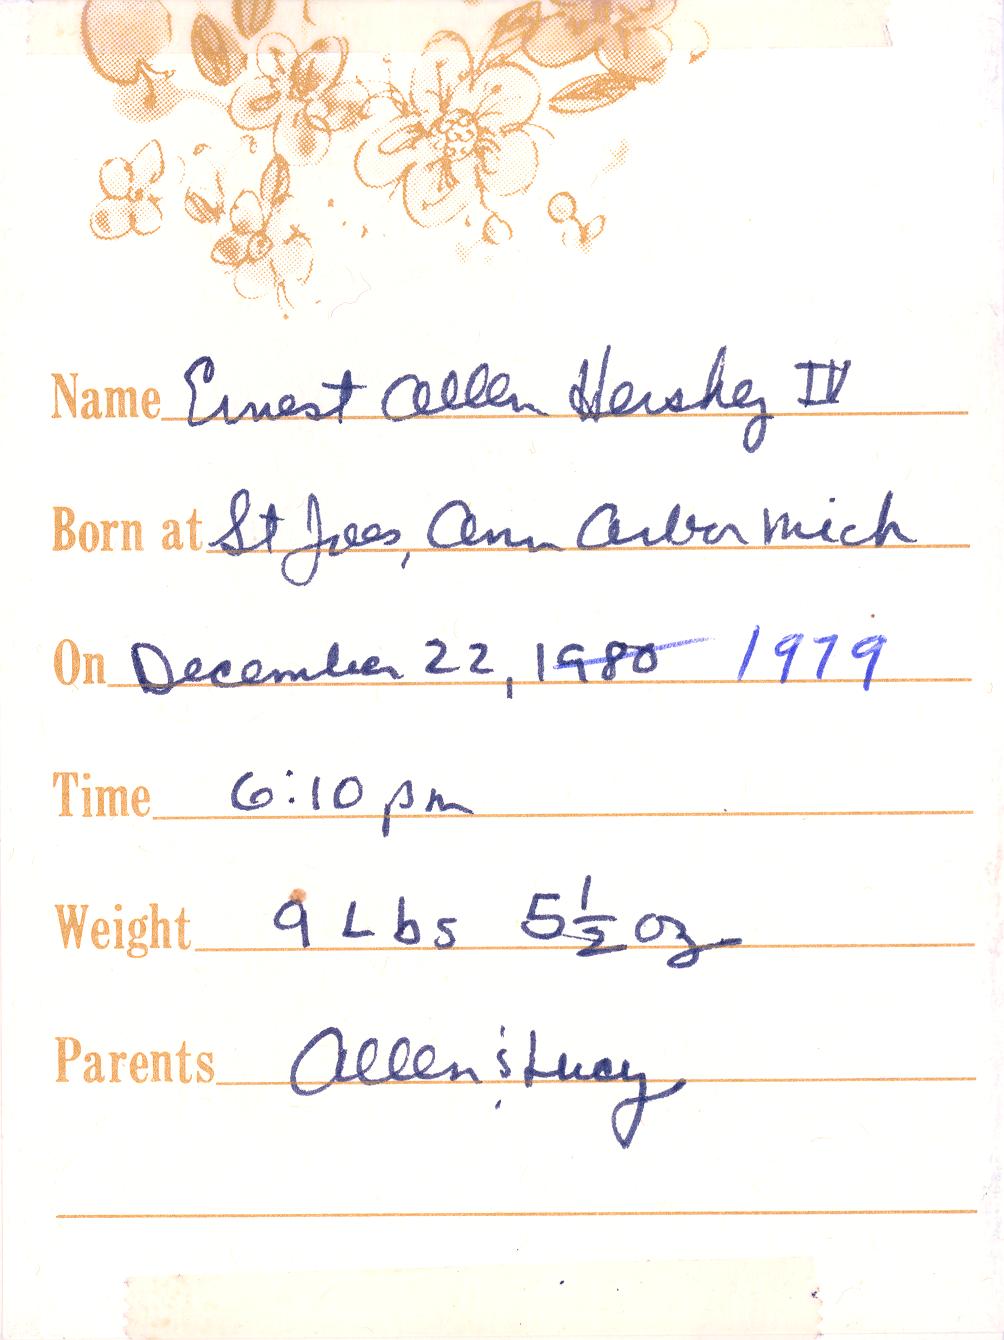 Name Ernest Allen Hershey IV
Born at St Joes, Ann Arbor Mich
On December 22, 1980 1979
Time 6:10 pm
Weight 9 Lbs 5½ oz
Parents Allen & Lucy